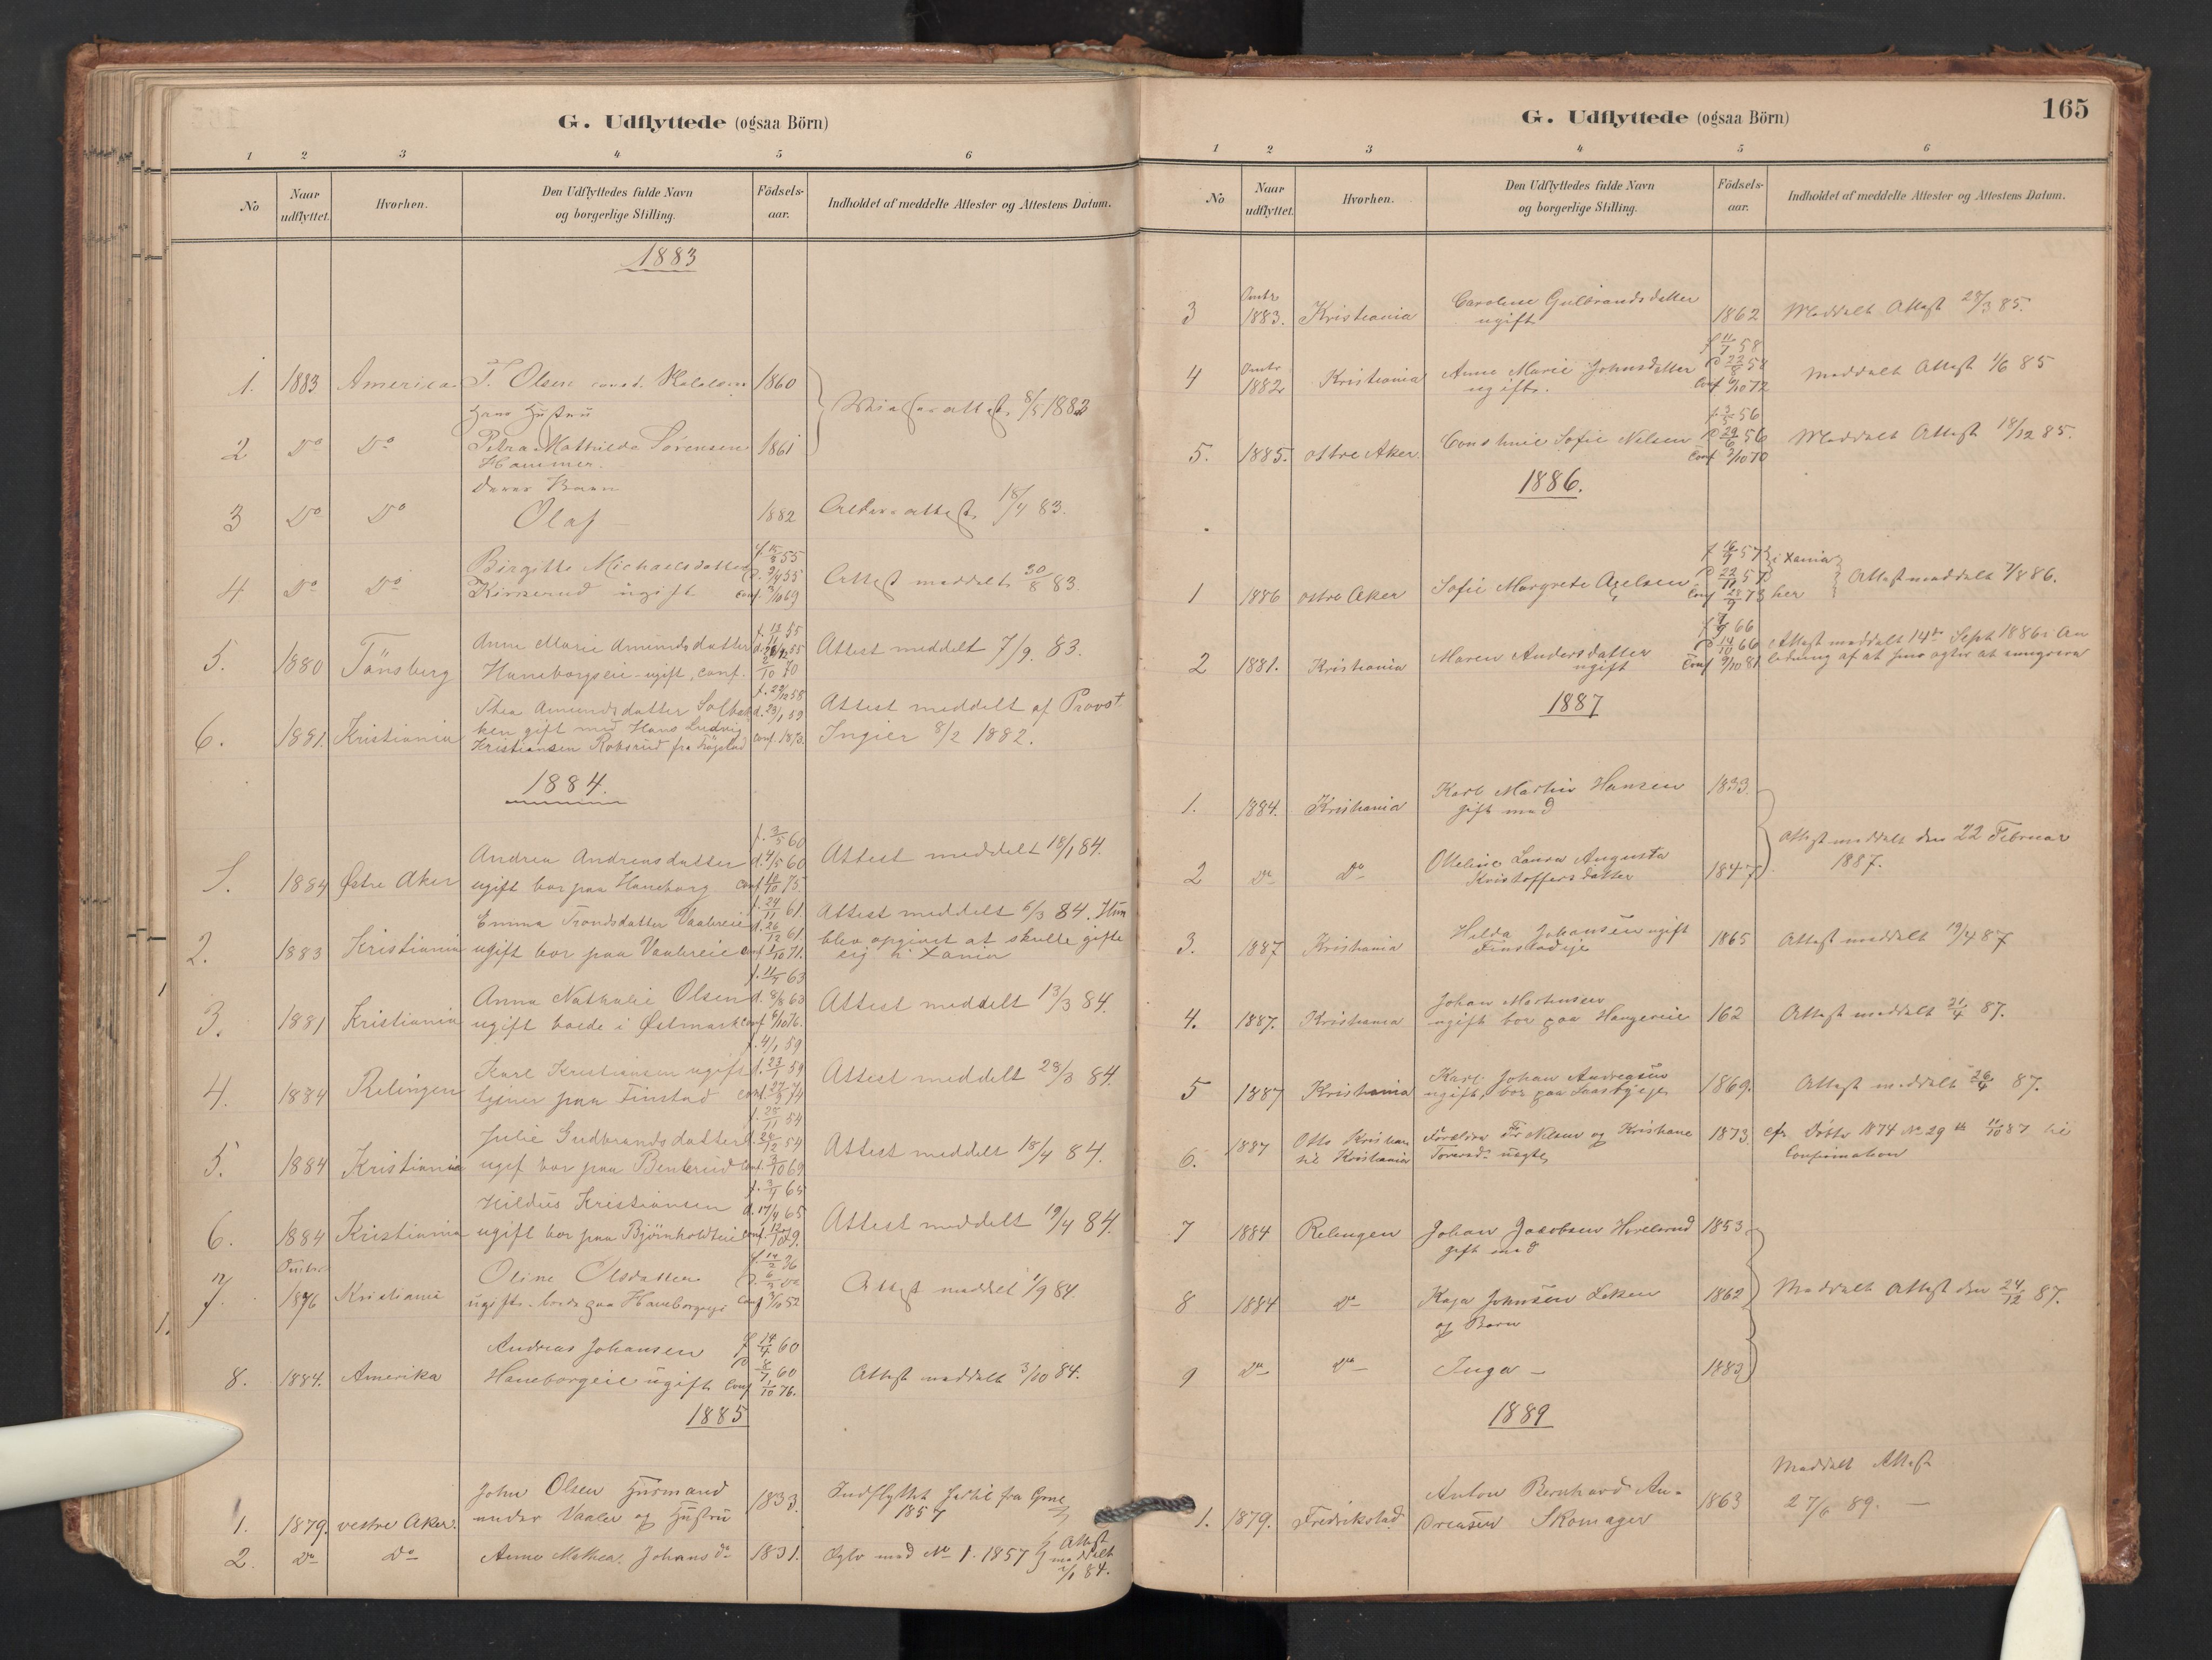 G. Udflyttede (ogsaa Börn)
1 2 3 4 5 6
No Naar udflyttet. Hvorhen. Den Udflyttedes fulde Navn og borgerlige Stilling. Födsels-aar. Indholdet af meddelte Attester og Attestens Datum.
1883
1. 1883 America T. Olsen 1860
2 Do Do Petra Mathilde Sørensen 1861 8/5 1883
Hammer.
deres Barn
3 Do Do Olaf 1882 18/4 83.
4 Do Do Birgitte Michaelsdatter
ugift conf 69 Attest meddelt 30/8 83.
5. 1880 Tönsberg Anne Marie Amundsdatter
Haneborgeie ugift, conf. 2/10 70 Attest meddelt 7/9. 83.
6. 1881. Kristiania Thea Amundsdatter
gift med Hans Ludvig
Kristiansen fra conf. 1873. Attest meddelt af Provst
Ingier 8/2 1882.
1884.
1. 1884 Østre Aker Andrea Andreasdatter f. 3/5 60 d. 4/5 60
ugift bor paa Haneborg conf 75. Attest meddelt 18/1 84.
2. 1883 Kristiania Emma Trondsdatter Vaalereie f. 24/11 61. d. 26/12 61
ugift bor paa Vaalereie conf Attest meddelt 6/3 84. Hun
blev opgivet at skulle gifte
sig i Xania
3. 1881 Kristiania Anna Nathalie Olsen d. 8/8 63
ugift boede i Østmark conf 8/10 76. Attest meddelt 13/3 84.
4. 1884 Relingen Karl Kristiansen ugift f. 4/1 59 d. 23/1 59
tjener paa Finstad conf. 74 Attest meddelt 28/3 84.
5. 1884 Kristiania Julie Gudbrandsdatter f. 25/11 54
bor paa conf. 3/10 69 Attest meddelt 18/4 84.
6. 1884 Kristiania Hildus Kristiansen d. 17/4 65
ugift bor paa Bjørnholdteie conf. 79. Attest meddelt 19/4 84.
7. Omtr. 1876 Kristiania Oline Olsdatter
ugift. boede paa Haneborgeie conf 3/10 52 Attest meddelt 1/9 84.
8. 1884. Amerika Andreas Johansen f 14/4 60
Haneborgeie ugift conf 1/10 76. Attest meddelt 3/10 84.
1885
1. 1879. vestre Aker. John Olsen Husmand
under Vaaler og Hustru 1833. Indflyttet hertil fra
1857
2. Do Do Anne Mathea Johansd. 1831. med No 1. 1857 Attest
meddelt
84.
165
G. Udflyttede (ogsaa Börn)
1 2 3 4 5 6
No Naar udflyttet. Hvorhen. Den Udflyttedes fulde Navn og borgerlige Stilling. Födsels-aar. Indholdet af meddelte Attester og Attestens Datum.
3 Omtr. 1883. Kristiania Caroline Gulbrandsdatter
ugift 1862 Meddelt Attest 28/3 85.
4 Omtr 1882 Kristiania Anne Marie Johnsdatter
ugift. conf 72 Meddelt Attest 1/6 85
5. 1885. østre Aker. Sofie Nilsen f 3/5 56 29/6 56
conf 2/10 70 Meddelt Attest 18/12 85.
1886.
1 1886 østre Aker Sofie Margrete Axelsen f 57 i Xania
conf 73 her Attest meddelt 86.
2 1881. Kristiania Maren Andersdatter
ugift 66 14/10 66
conf 9/10 81 Attest meddelt 14de Sept. 1886 i An
ledning af at hun agter at
1887
1. 1884. Kristiania Karl Martin Hansen
gift med 1833.
2 Do Do Otteline Laura Augusta
Kristoffersdatter 184 Attest meddelt den 22 Februar
1887.
3. 1887 Kristiania Hilda Johansen ugift
Finstadeje 1865 Attest meddelt 19/4 87
4. 1887. Kristiania Johan Martinsen
ugift bor paa 162 Attest meddelt 21/4 87.
5 1887 Kristiania Karl Johan Andreasen
ugift, bor paa 1869. Attest meddelt 26/4 87.
6. 1887 Otto Kristian
til Kristiania Forældre Fr Nilsen og Kristiane
uægte 1873 cfr Døbte 1874 No 29 11/10 87 til
Confirmation
7 1884 Relingen Johan Jacobsen
gift med 1853
8 1884 Do Kaja Johnsen
og Barn 1862 Meddelt Attest den 24/12 87.
9 Do Do Inga - 188
1889
1. 1879. Fredrikstad Anton Bernhard An-
dreasen Skomager 1863 Meddelt Attest
27/6 89. -